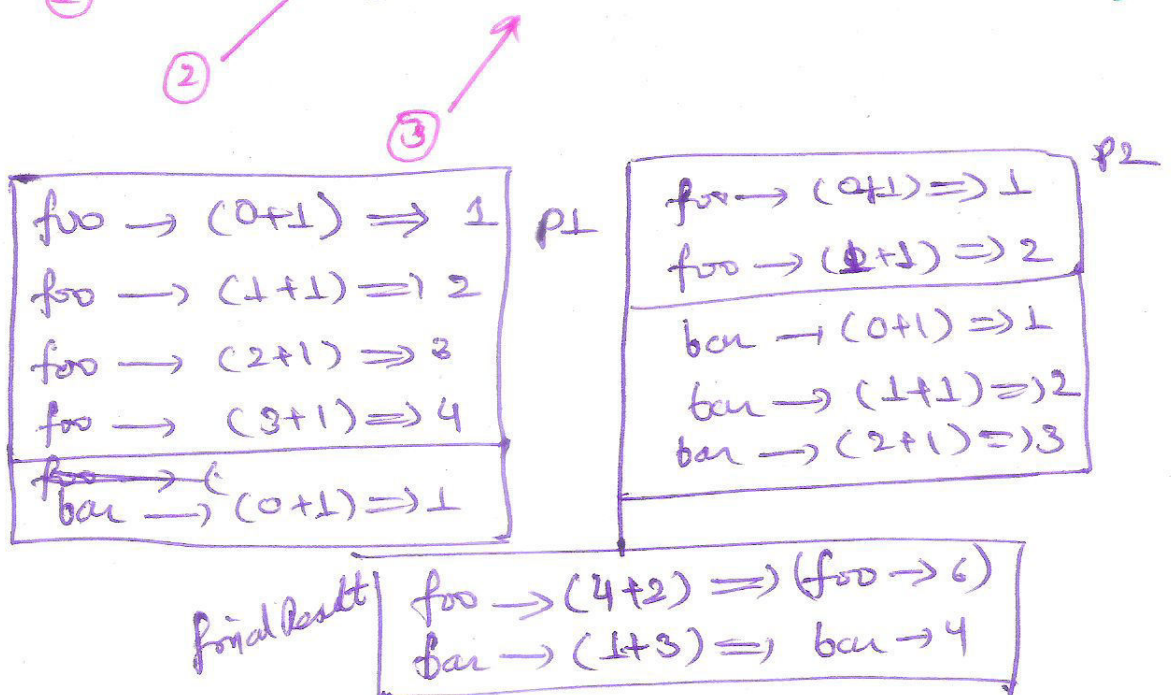 ②
③
foo → (0+1) ⇒ 1
foo → (1+1) ⇒ 2
foo → (2+1) ⇒ 3
foo → (3+1) ⇒ 4
bar → (0+1) ⇒ 1
P1
P2
foo → (0+1) ⇒ 1
foo → (1+1) ⇒ 2
bar → (0+1) ⇒ 1
bar → (1+1) ⇒ 2
bar → (2+1) ⇒ 3
final Result
foo → (4+2) ⇒ (foo → 6)
bar → (1+3) ⇒ bar → 4